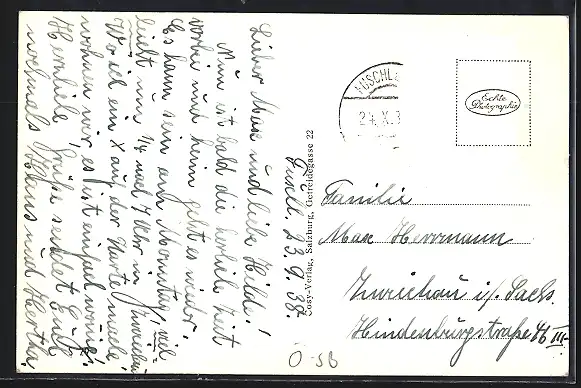 Lieber Max und liebe Hilde!
Nun ist bald die herrliche Zeit
vorbei und heim geht es wieder.
Es kann sein am Montag, viel-
leicht um 1/4 nach 7 Uhr in Zwickau
Wo ich ein X auf der Karte mache,
wohnen wir, es ist einfach wonnig.
Herzliche Grüße sendet Euch
nochmals Hans und Hertha
Fuschl, 23.9.38.
Cosy-Verlag, Salzburg, Getreidegasse 22
FUSCHL
24.IX.3
Echte
Photographie
Familie
Max Herrmann
Zwickau i/Sachs.
Hindenburgstraße 46 III
0-56